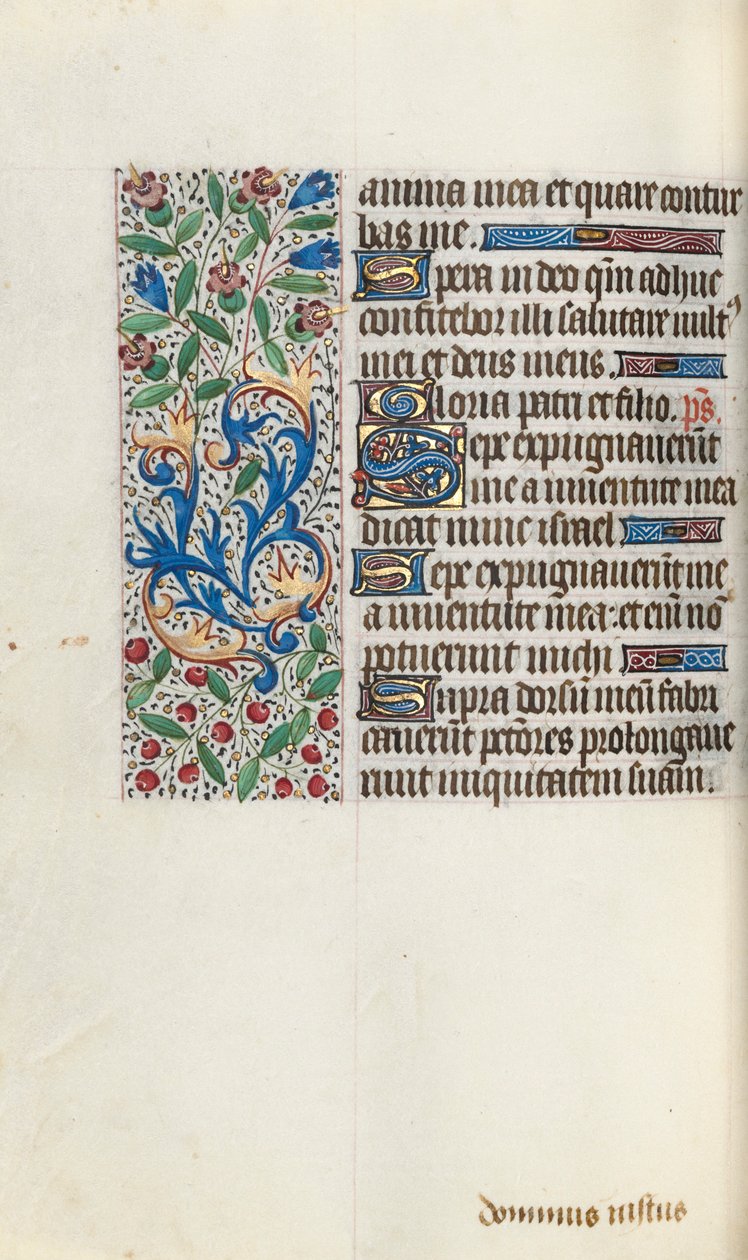 anima mea et quare contur
bas me.
Spera in deo qm̄ adhuc
confitebor illi salutare vult⁹
mei et deus meus.
Gloria patri et filio. ps̄.
Sepe expugnauerūt
me a iuuentute mea
dicat nunc israel
Sepe expugnauerūt me
a iuuentute mea: et eni̅ nō
potuerunt michi
Supra dorsū meū fabri
cauerūt pctōres prolongaue
runt iniquitatem suam.
dominus iustus